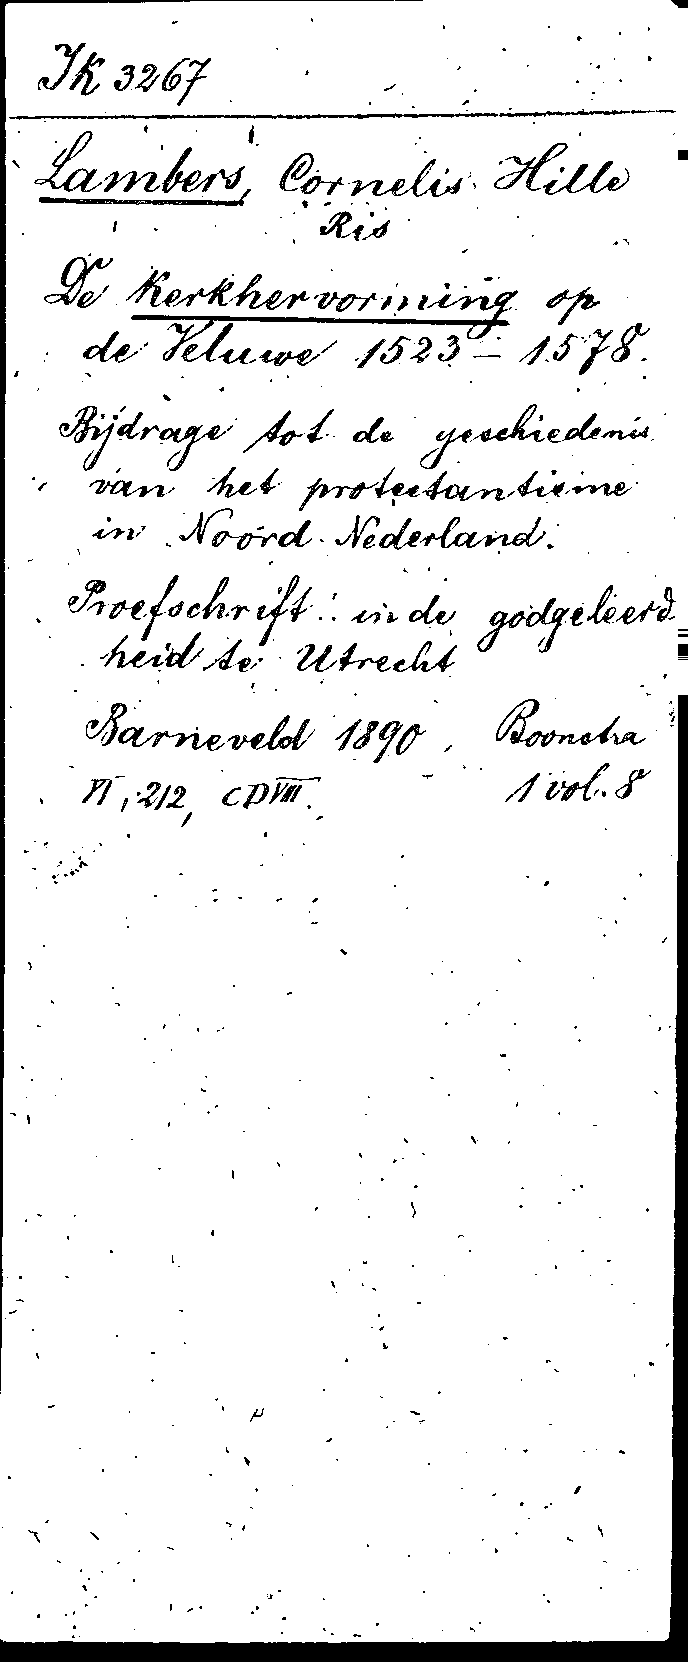 IK 3267
Lambers, Cornelis Hille
Ris
De kerkhervorming op
de Veluwe 1523 – 1578.
Bijdrage tot de geschiedenis
van het protestantisme
in Noord-Nederland.
Proefschrift .. in de godgeleerd
heid te Utrecht
Barneveld 1890, Boonstra
VI, 212, CDVIII. 1 vol. 8